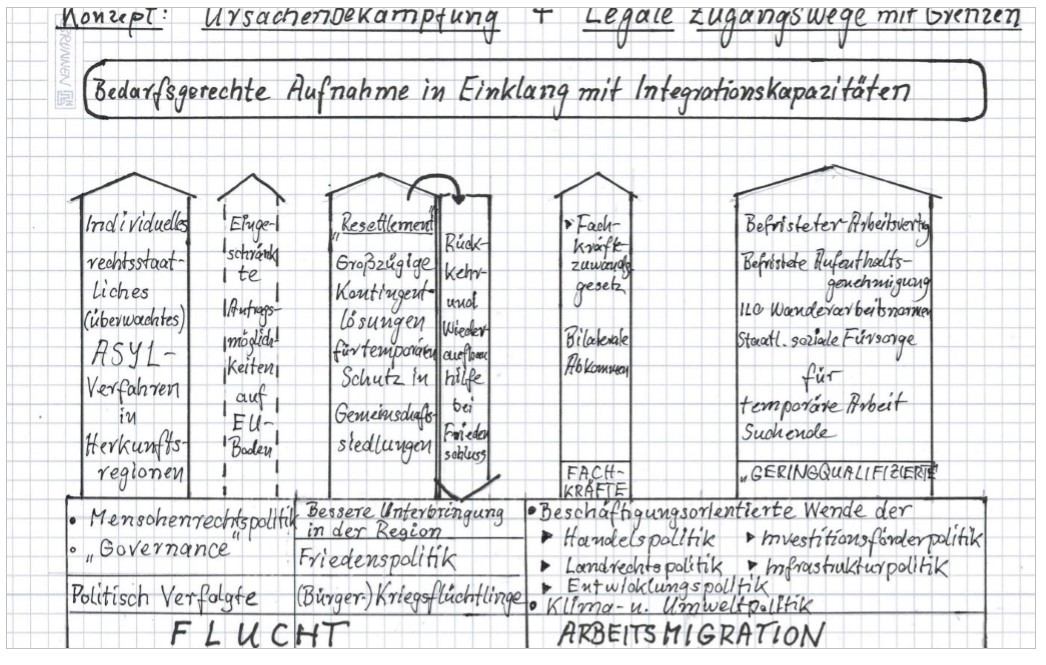 Konzept: Ursachenbekämpfung + Legale Zugangswege mit Grenzen
BRUNNEN
Bedarfsgerechte Aufnahme in Einklang mit Integrationskapazitäten
Individuelles
rechtsstaat-
liches
(überwachtes)
ASYL-
Verfahren
in
Herkunfts-
regionen
Einge-
schränk
te
Antrags-
möglich-
keiten
auf
EU-
Boden
"Resettlement"
Großzügige
Kontingent-
lösungen
für temporären
Schutz in
Gemeinschafts-
siedlungen
Rück-
kehr-
und
Wieder
aufbau
hilfe
bei
Frieden
schluss
Fach-
kräfte
zuwandgs
gesetz
Bilaterale
Abkommen
FACH-
KRÄFTE
Befristeter Arbeitsvertrg
Befristete Aufenthalts-
genehmigung
ILO Wanderarbeitsnormen
Staatl. soziale Fürsorge
für
temporäre Arbeit
Suchende
„GERINGQUALIFIZIERTE"
• Menschenrechtspolitik
• „Governance"
Politisch Verfolgte
Bessere Unterbringung
in der Region
Friedenspolitik
(Bürger-) Kriegsflüchtlinge
FLUCHT
• Beschäftigungsorientierte Wende der
▸ Handelspolitik ▸ Investitionsförderpolitik
▸ Landrechtspolitik ▸ Infrastrukturpolitik
▸ Entwicklungspolitik
• Klima- u. Umweltpolitik
ARBEITSMIGRATION